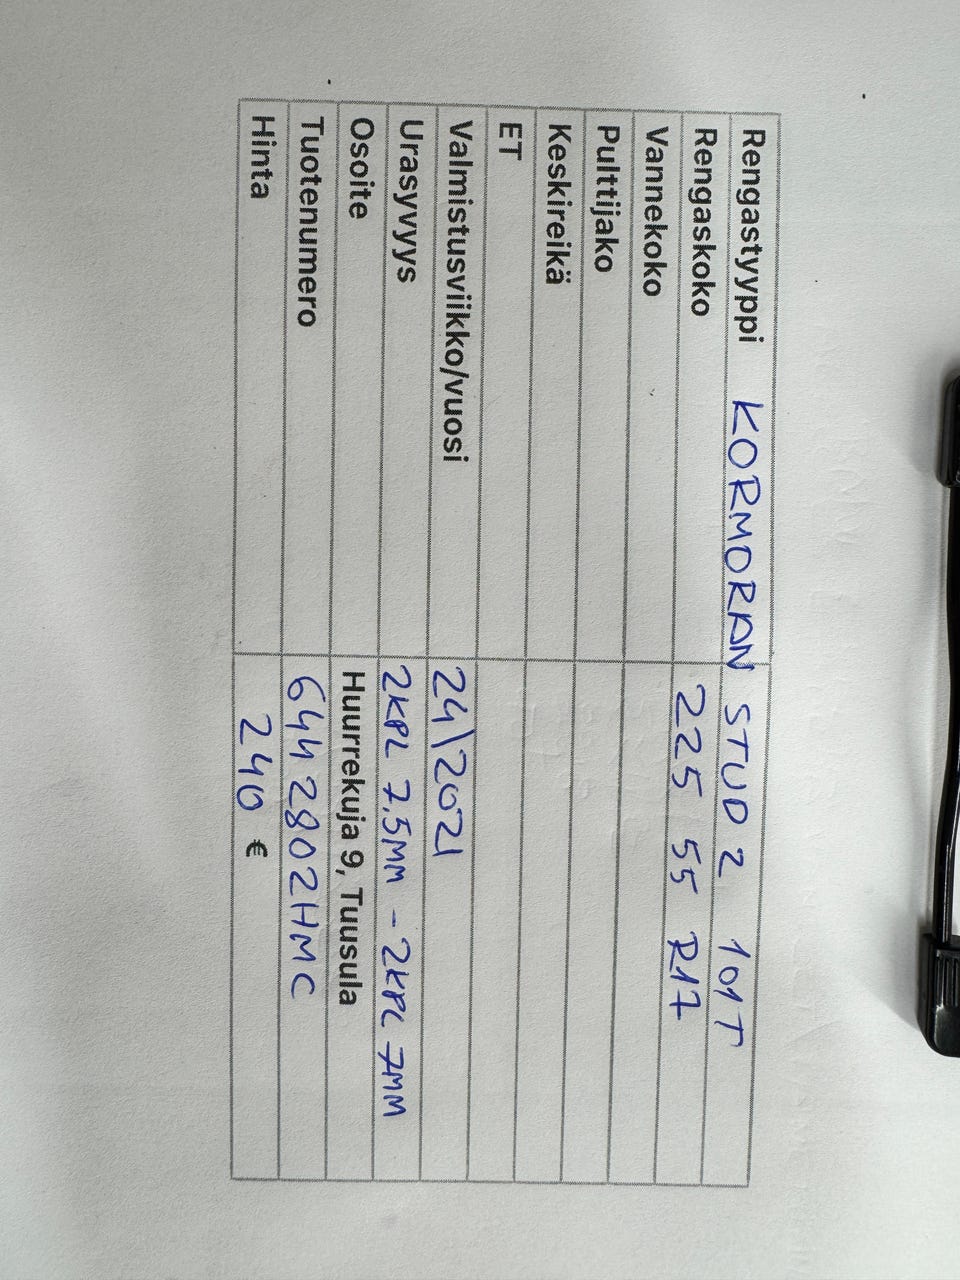 Rengastyyppi KORMORAN STUD 2 101T
Rengaskoko 225 55 R17
Vannekoko
Pulttijako
Keskireikä
ET
Valmistusviikko/vuosi 24\2021
Urasyvyys 2KPL 7,5MM - 2KPL 7MM
Osoite Huurrekuja 9, Tuusula
Tuotenumero 6442802HMC
Hinta 240 €